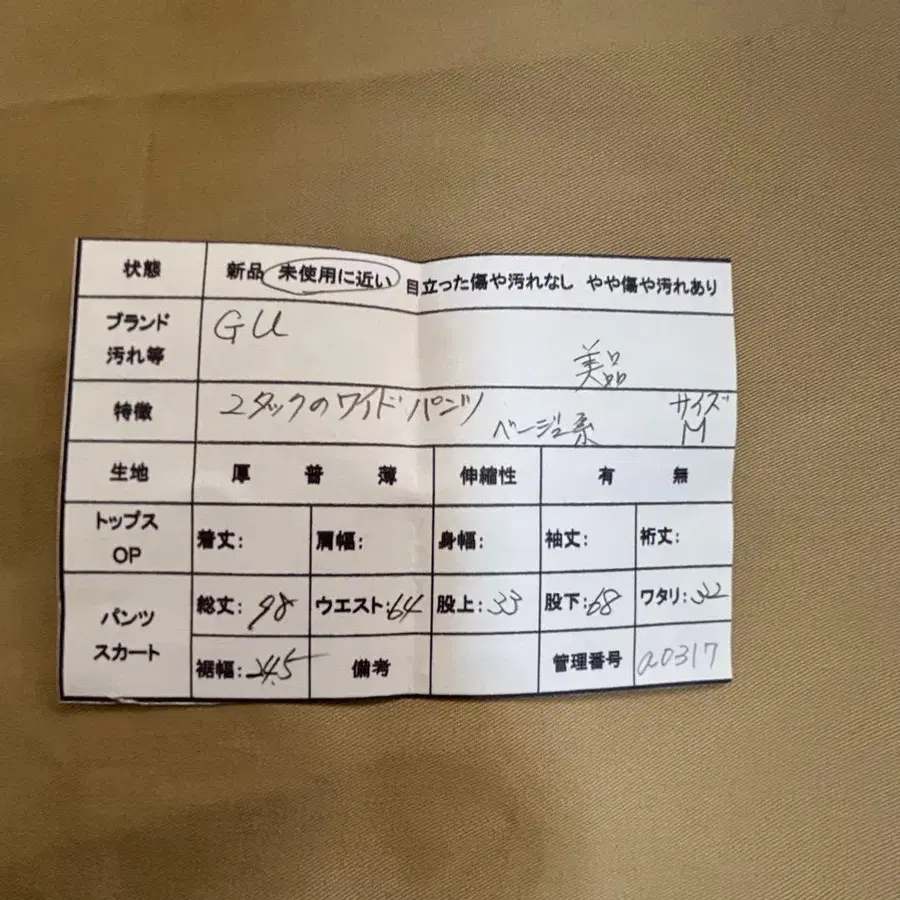 状態 新品 未使用に近い 目立った傷や汚れなし やや傷や汚れあり
ブランド GU
汚れ等 美品
特徴 2タックのワイドパンツ サイズ
ベージュ系 M
生地 厚 普 薄 伸縮性 有 無
トップス
OP 着丈: 肩幅: 身幅: 袖丈: 裄丈:
パンツ 総丈:98 ウエスト:64 股上:33 股下:68 ワタリ:32
スカート
裾幅:24.5 備考 管理番号 a0317